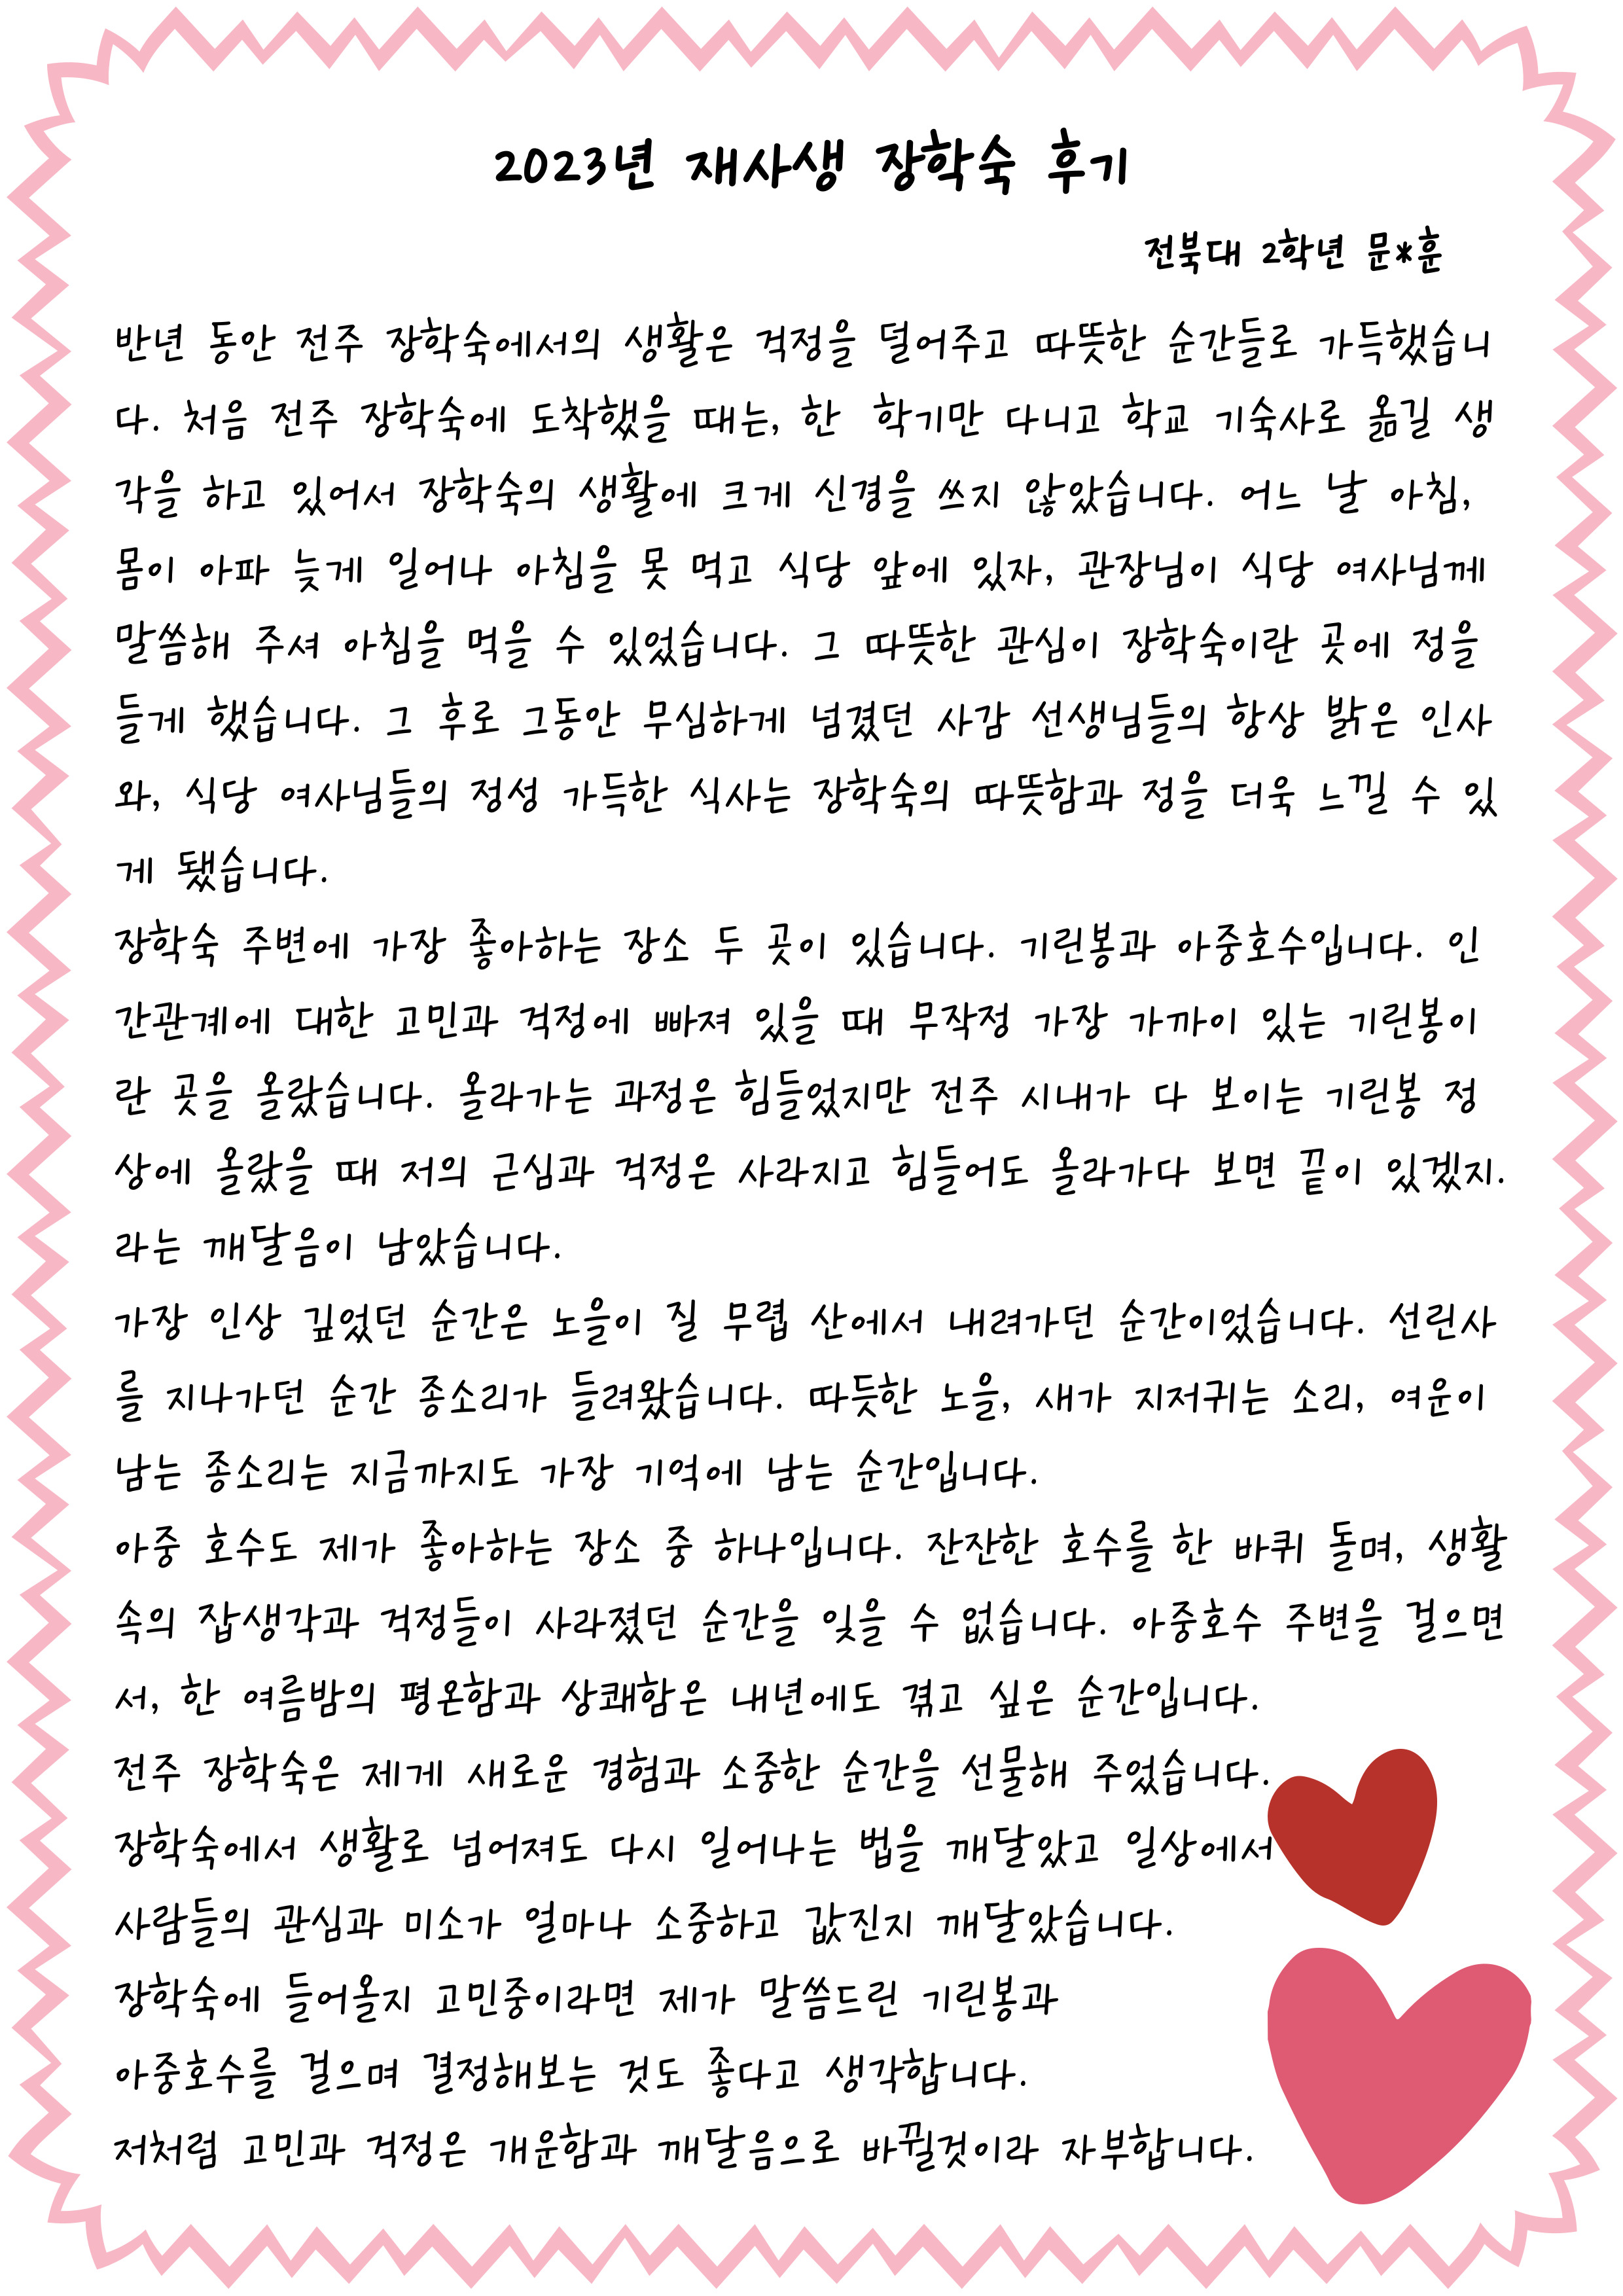 2023년 재사생 장학숙 후기
전북대 2학년 문*훈
반년 동안 전주 장학숙에서의 생활은 걱정을 덜어주고 따뜻한 순간들로 가득했습니
다. 처음 전주 장학숙에 도착했을 때는, 한 학기만 다니고 학교 기숙사로 옮길 생
각을 하고 있어서 장학숙의 생활에 크게 신경을 쓰지 않았습니다. 어느 날 아침,
몸이 아파 늦게 일어나 아침을 못 먹고 식당 앞에 있자, 관장님이 식당 여사님께
말씀해 주셔 아침을 먹을 수 있었습니다. 그 따뜻한 관심이 장학숙이란 곳에 정을
들게 했습니다. 그 후로 그동안 무심하게 넘겼던 사감 선생님들의 항상 밝은 인사
와, 식당 여사님들의 정성 가득한 식사는 장학숙의 따뜻함과 정을 더욱 느낄 수 있
게 됐습니다.
장학숙 주변에 가장 좋아하는 장소 두 곳이 있습니다. 기린봉과 아중호수입니다. 인
간관계에 대한 고민과 걱정에 빠져 있을 때 무작정 가장 가까이 있는 기린봉이
란 곳을 올랐습니다. 올라가는 과정은 힘들었지만 전주 시내가 다 보이는 기린봉 정
상에 올랐을 때 저의 근심과 걱정은 사라지고 힘들어도 올라가다 보면 끝이 있겠지.
라는 깨달음이 남았습니다.
가장 인상 깊었던 순간은 노을이 질 무렵 산에서 내려가던 순간이었습니다. 선린사
를 지나가던 순간 종소리가 들려왔습니다. 따듯한 노을, 새가 지저귀는 소리, 여운이
남는 종소리는 지금까지도 가장 기억에 남는 순간입니다.
아중 호수도 제가 좋아하는 장소 중 하나입니다. 잔잔한 호수를 한 바퀴 돌며, 생활
속의 잡생각과 걱정들이 사라졌던 순간을 잊을 수 없습니다. 아중호수 주변을 걸으면
서, 한 여름밤의 평온함과 상쾌함은 내년에도 겪고 싶은 순간입니다.
전주 장학숙은 제게 새로운 경험과 소중한 순간을 선물해 주었습니다.
장학숙에서 생활로 넘어져도 다시 일어나는 법을 깨달았고 일상에서
사람들의 관심과 미소가 얼마나 소중하고 값진지 깨달았습니다.
장학숙에 들어올지 고민중이라면 제가 말씀드린 기린봉과
아중호수를 걸으며 결정해보는 것도 좋다고 생각합니다.
저처럼 고민과 걱정은 개운함과 깨달음으로 바뀔것이라 자부합니다.